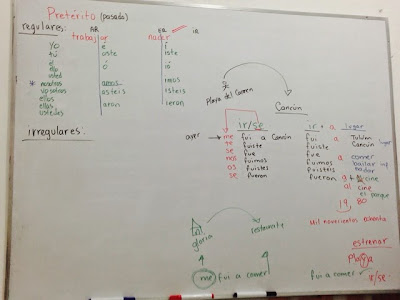 Pretérito (pasado)
regulares: AR ER IR
trabajar nacer
yo é í
tú aste iste
él
ella ó ió
usted
* nosotros amos imos
vosotros asteis isteis
ellos
ellas aron ieron
ustedes
Playa del Carmen
Cancún
irregulares:
ir/se
ir + a lugar
ayer me fui a Cancún
te fuiste
se fue
nos fuimos
os fuisteis
se fueron
fui a Tulum
fuiste Cancún lugar
fue a comer
fuimos bailar
fuisteis nadar
fueron
al cine
19 80
Mil novecientos ochenta
gloria
restaurante
me fui a comer
estrenar
Playa
fui a comer
ir/se